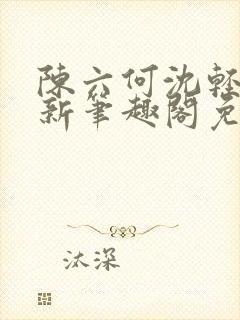 陳六何沈輕
新筆趣閣免
汰深